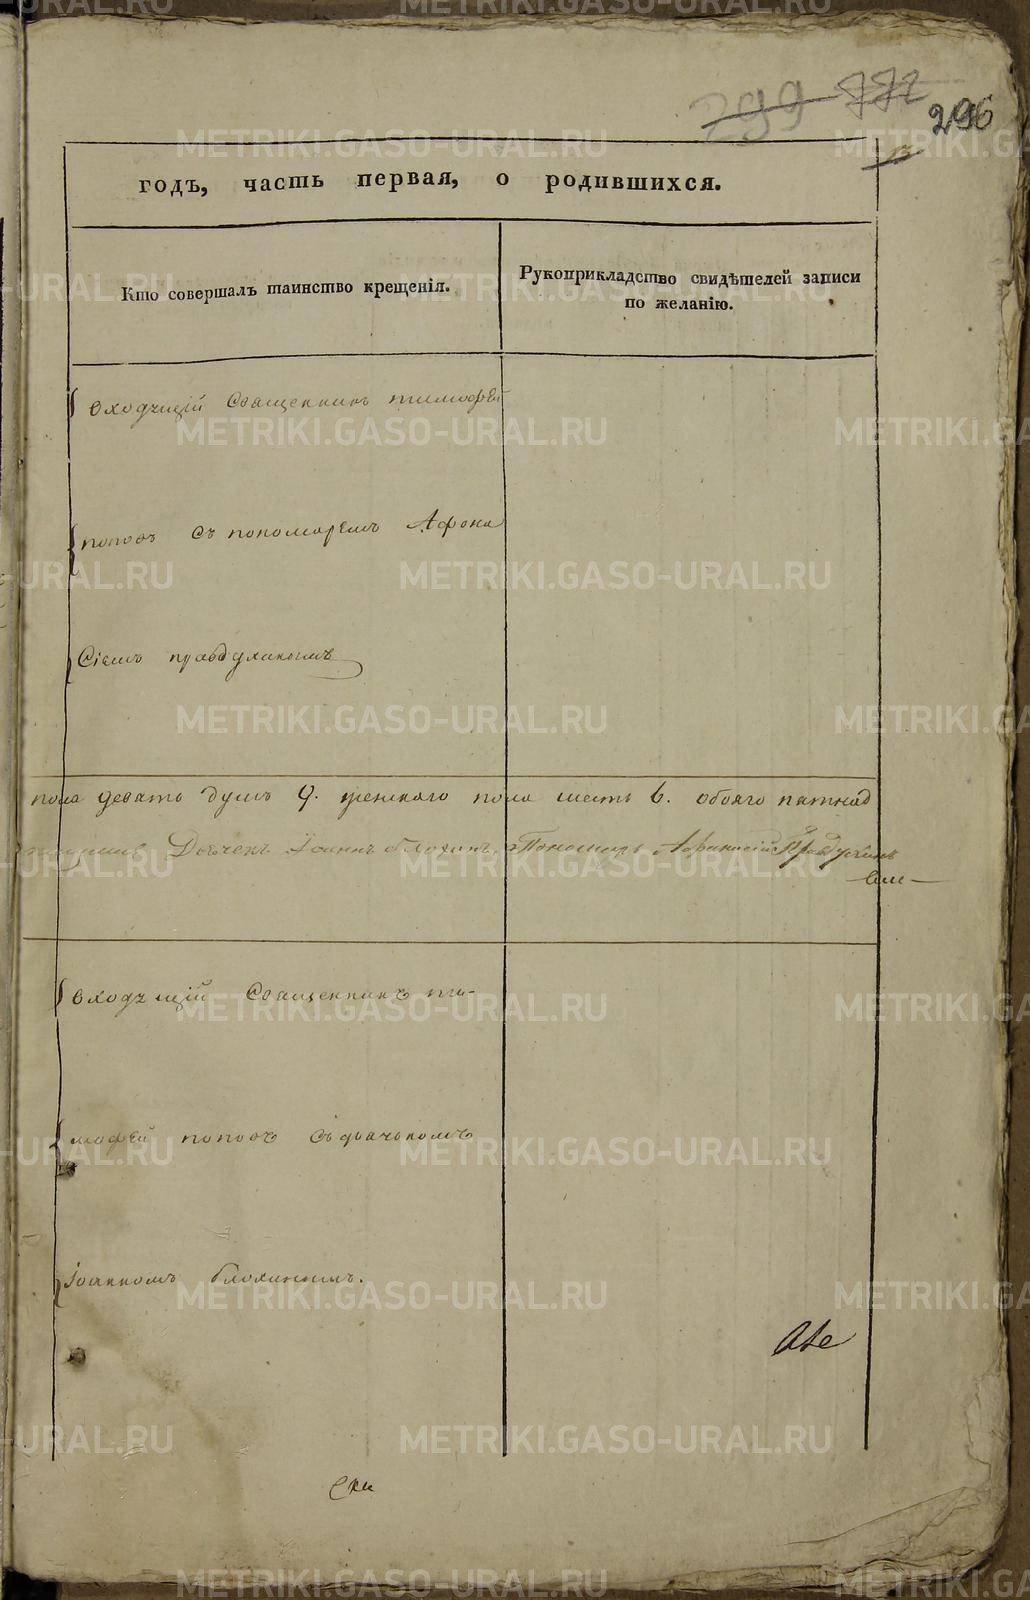 299 772
296
13
годъ, часть первая, о родившихся.
Кто совершалъ таинство крещенія.
Рукоприкладство свидѣтелей записи
по желанію.
входящій Священникъ тимофей
поповъ съ пономаремъ Афона
сіемъ правдухинымъ
пола девять душъ 9. женскаго пола шесть 6. обояго пятнад
Дьячекъ Іоаннъ блохинъ. Пономарь Афанасій Правдухинъ
входящій Священникъ ти-
мофей поповъ съ дьячькомъ
іоанномъ блохинымъ.
METRIKI.GASO-URAL.RU